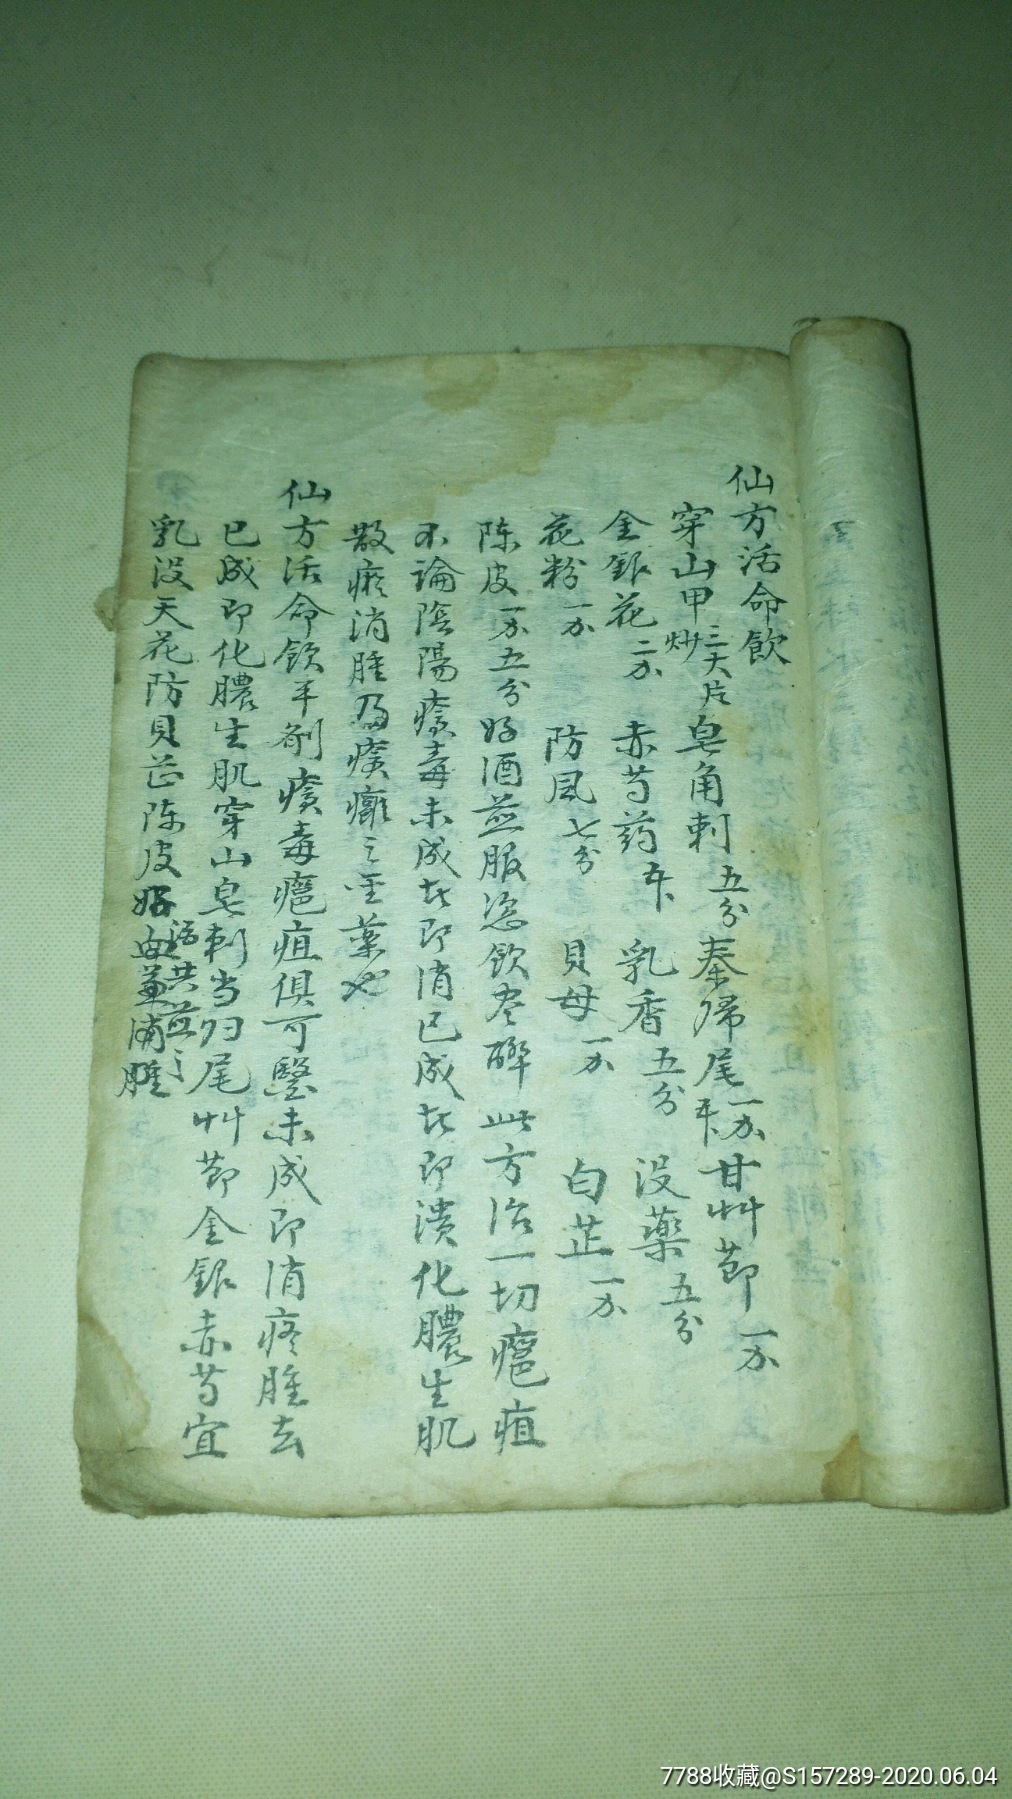 仙方活命飲
穿山甲炒三大片 皂角刺五分 秦歸尾一钱五分 甘艸節一钱
金銀花二钱 赤芍药五分 乳香五分 没藥五分
花粉一钱 防風七分 貝母一钱 白芷一钱
陈皮一钱五分 好酒煎服恣飲尽醉 此方治一切癰疽
不論陰陽瘡毒未成者即消已成者即潰化膿生肌
散瘀消腫乃瘡癰之聖藥也
仙方活命飲平剂瘡毒癰疽俱可醫未成即消疼腫去
已成即化膿生肌穿山皂刺当归尾艸節金銀赤芍宜
乳没天花防貝芷陈皮好酒共煎之
7788收藏@S157289-2020.06.04